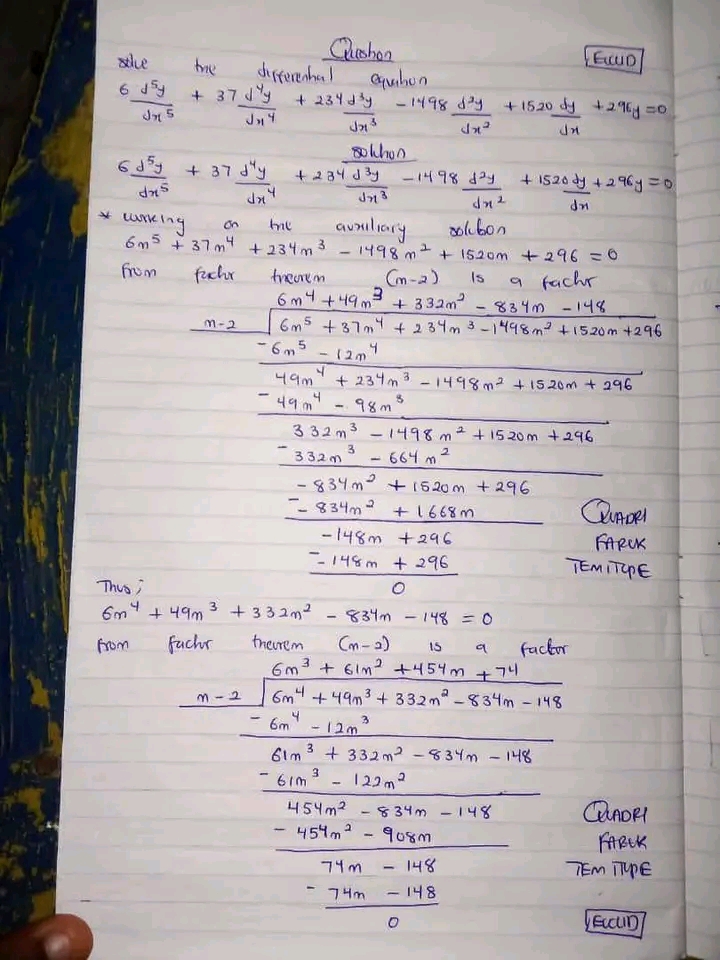 Question
EUCLID
solve the differential equation
6 d⁵y/dx⁵ + 37 d⁴y/dx⁴ + 234 d³y/dx³ - 1498 d²y/dx² + 1520 dy/dx + 296y = 0
solution
6 d⁵y/dx⁵ + 37 d⁴y/dx⁴ + 234 d³y/dx³ - 1498 d²y/dx² + 1520 dy/dx + 296y = 0
* working on the auxiliary solution
6m⁵ + 37m⁴ + 234m³ - 1498m² + 1520m + 296 = 0
from factor theorem (m-2) is a factor
6m⁴ + 49m³ + 332m² - 834m - 148
m-2 | 6m⁵ + 37m⁴ + 234m³ - 1498m² + 1520m + 296
- 6m⁵ - 12m⁴
49m⁴ + 234m³ - 1498m² + 1520m + 296
- 49m⁴ - 98m³
332m³ - 1498m² + 1520m + 296
- 332m³ - 664m²
- 834m² + 1520m + 296
- - 834m² + 1668m
QUADRI
-148m + 296
FARUK
- -148m + 296
TEMITOPE
0
Thus;
6m⁴ + 49m³ + 332m² - 834m - 148 = 0
from factor theorem (m-2) is a factor
6m³ + 61m² + 454m + 74
m-2 | 6m⁴ + 49m³ + 332m² - 834m - 148
- 6m⁴ - 12m³
61m³ + 332m² - 834m - 148
- 61m³ - 122m²
454m² - 834m - 148
QUADRI
- 454m² - 908m
FARUK
74m - 148
TEMITOPE
- 74m - 148
0
EUCLID